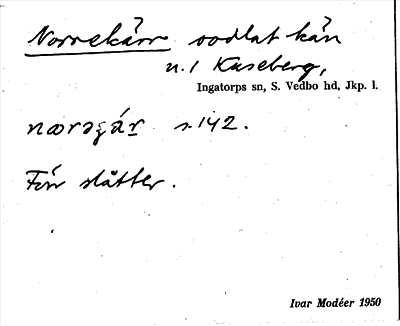 Norrekärr oodlat kärr
n. i Kaseberg,
Ingatorps sn, S. Vedbo hd, Jkp. l.
s. 142.
Förr slåtter.
Ivar Modéer 1950